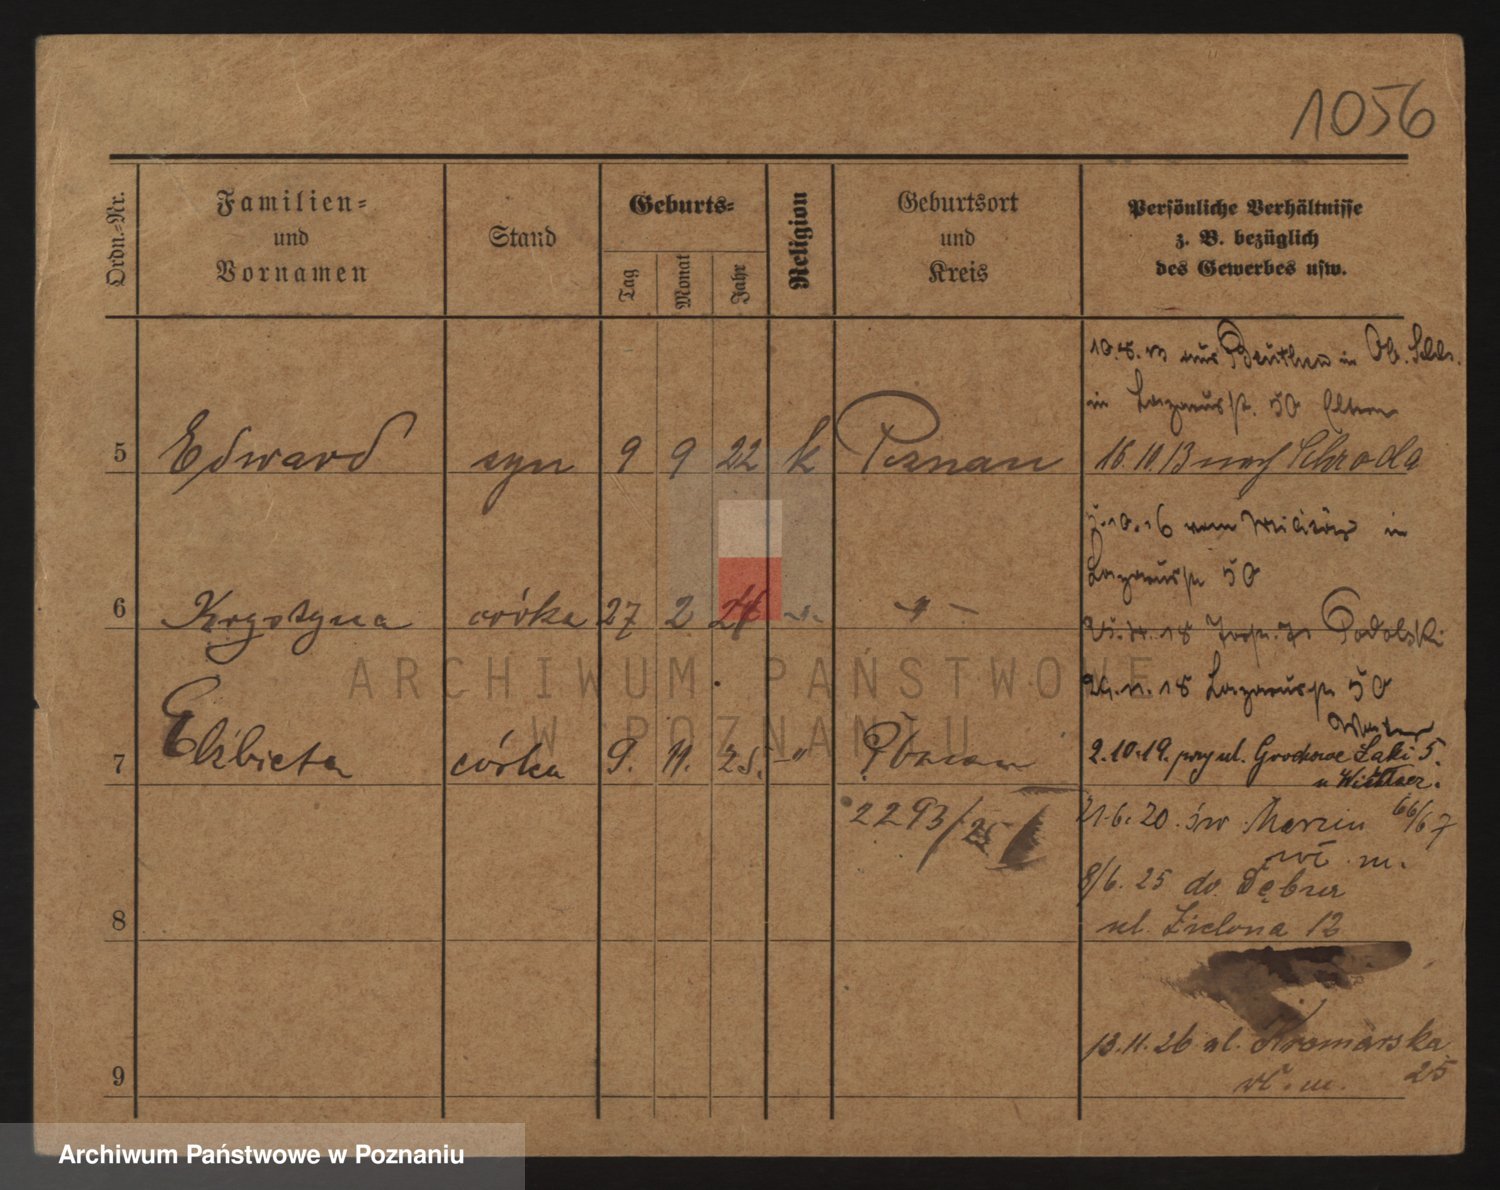 1056
Ordn.-Nr.
Familien-
und
Vornamen
Stand
Geburts-
Tag
Monat
Jahr
Religion
Geburtsort
und
Kreis
Persönliche Verhältnisse
z. B. bezüglich
des Gewerbes usw.
aus Beuthen in Ob. Schls.
in Lazarusstr. 50 Eltern
5 Edward syn 9 9 22 k Poznan
16.10.13 nach Schroda
7.10.16 vom Militär in
Lazarusstr 50
6 Krystyna córka 27 2 24 -"- -"-
Podolski
Lazarusstr 50
7 Elżbieta córka 9. 11. 25. -"- Poznan
2.10.19. przy ul. Grochowe Łaki 5.
2293/25
21.6.20. św Marcin 66/67
wł. m.
8/6. 25 do Dębca
8
ul. Zielona 12
13.11.26 ul. Kromarska
25
wł. m.
9
ARCHIWUM PAŃSTWOWE
W POZNANIU
Archiwum Państwowe w Poznaniu